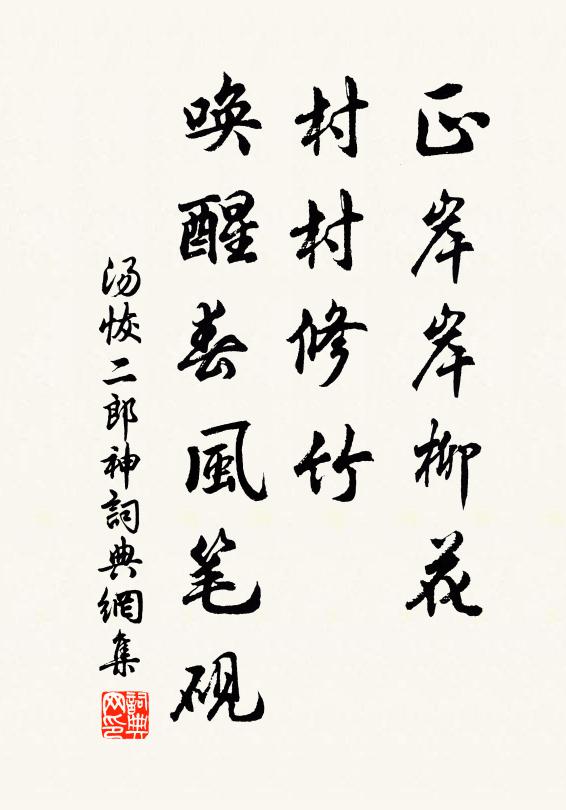 正岸岸柳花
村村修竹
喚醒春風笔硯
汤恢二郎神詞典網集
詞典网印